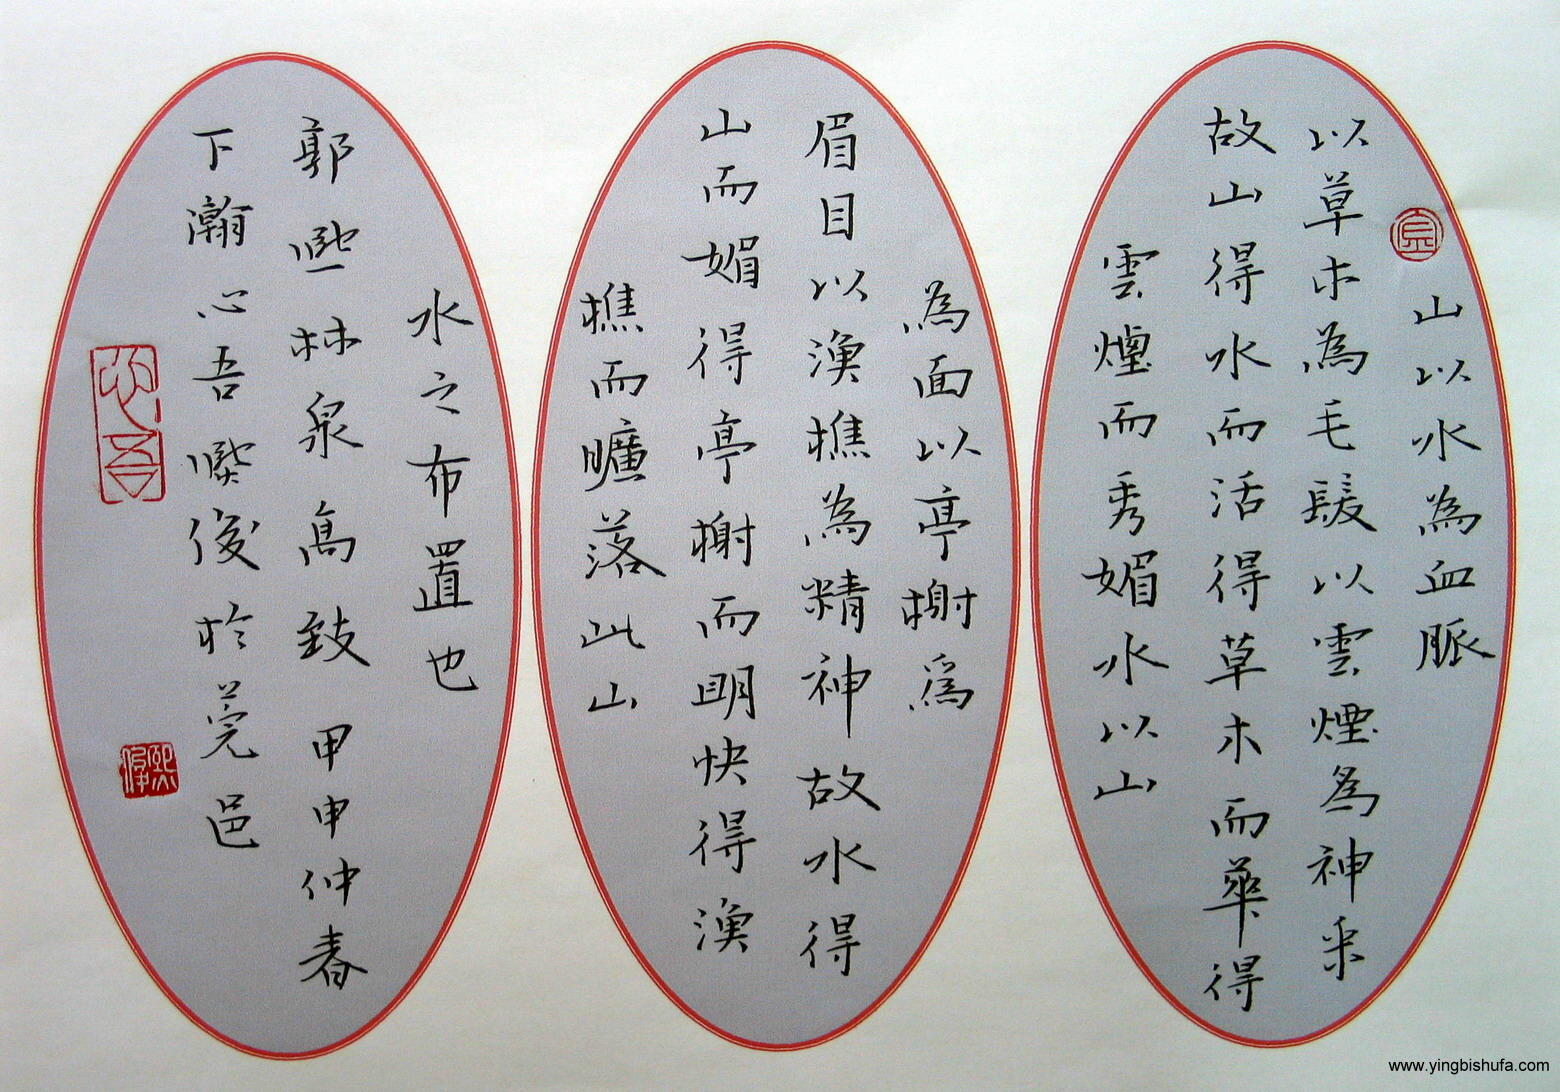 山以水為血脈
以草木為毛髮以雲煙為神采
故山得水而活得草木而華得
雲煙而秀媚水以山
為面以亭榭爲
眉目以漁樵為精神故水得
山而媚得亭榭而明快得漁
樵而曠落此山
水之布置也
郭熙林泉高致 甲申仲春
下瀚心吾熙俊於莞邑
心吾
熙俊
www.yingbishufa.com